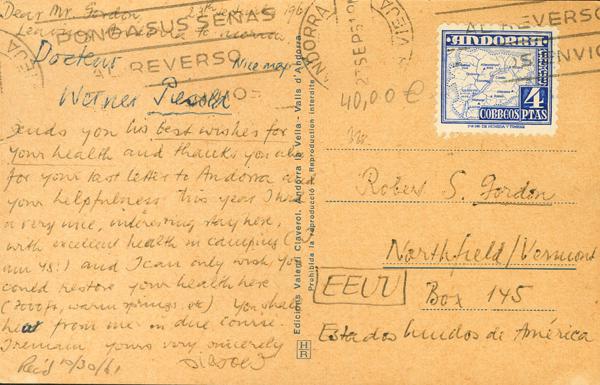 Dear Mr. Gordon, 25th sept. 1961
Leaving Andorra to-morrow
PONGA SUS SEÑAS
AL REVERSO
Docteur
Nice map
Werner
Sends you his best wishes for
your health and thanks you also
for your last letter to Andorra a
your helpfulness. This year I had
a very nice, interesting stay here,
with excellent health in camping (
am 45!) and I can only wish you
could restore your health here
(7000 fs, warm springs, etc) You shall
hear from me in due course.
I remain yours very sincerely
Rec'd 10/30/61
Edicions Valentí Claverol. Andorra la Vella - Valls d'Andorra
Prohibida la reproducció - Reproduction interdite
HR
ANDORRA
VIEJA
SEP 61
40,00 €
PONGA SUS SEÑAS
AL REVERSO
ANDORRA
4
CORREOS PTAS
Robert S. Gordon
Northfield/Vermont
Box 145
EEUU
Estados Unidos de América